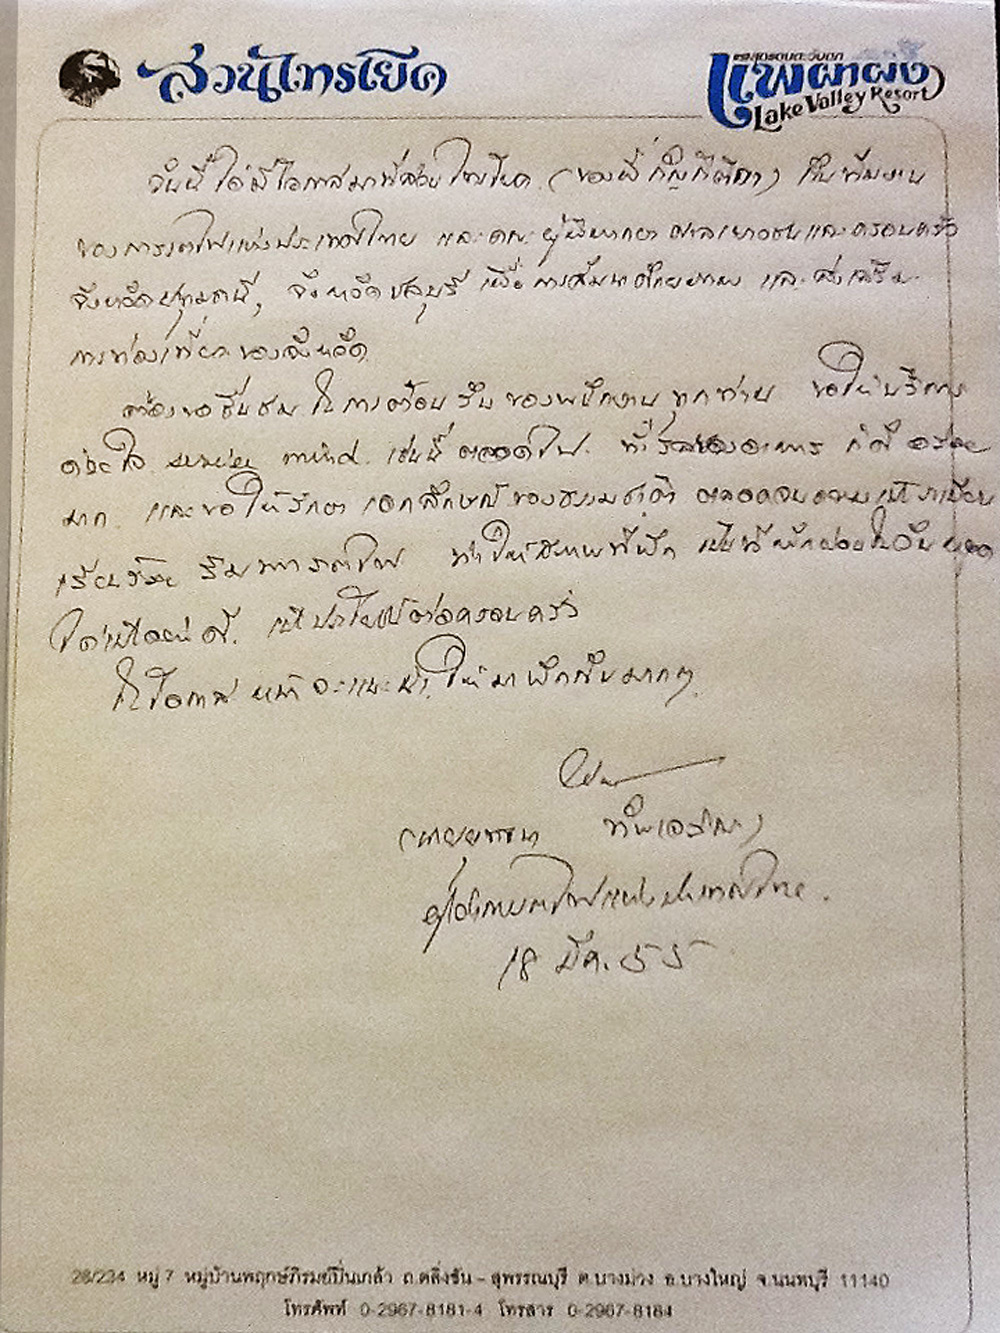 สวนไทรโยค
แพผาผึ้ง
Lake Valley Resort
วันนี้ ได้มีโอกาสมาที่สวนไทรโยค (ของพี่ ) กับทีมงาน
ของการรถไฟแห่งประเทศไทย และคณะผู้พิพากษา ศาลเยาวชนและครอบครัว
จังหวัดปทุมธานี, จังหวัดชลบุรี เพื่อการสัมนา และส่งเสริม
การท่องเที่ยวของจังหวัด
ต้องขอชื่นชม ในการต้อนรับ ของพนักงานทุกท่าน ขอให้บริการ
ด้วยใจ service mind เช่นนี้ ตลอดไป ที่ ของอาหาร ก็ดี อร่อย
มาก และขอให้รักษาเอกลักษณ์ของธรรมชาติ ตลอดจนความเป็นระเบียบ
เรียบร้อย ริมทางรถไฟ ทำให้สถานที่พัก เป็นที่พักผ่อนในวันหยุด
ได้เป็นอย่างดี เป็นประโยชน์ต่อครอบครัว
ในโอกาสหน้าจะแนะนำ ให้มาพักกันมากๆ
(นายยุทธนา ทัพเจริญ)
ผู้ว่าการรถไฟแห่งประเทศไทย.
18 มีค. 55
28/234 หมู่ 7 หมู่บ้านพฤกษ์ภิรมย์ปิ่นเกล้า ถ.ตลิ่งชัน - สุพรรณบุรี ต.บางม่วง อ.บางใหญ่ จ.นนทบุรี 11140
โทรศัพท์ 0-2967-8181-4 โทรสาร 0-2967-8184